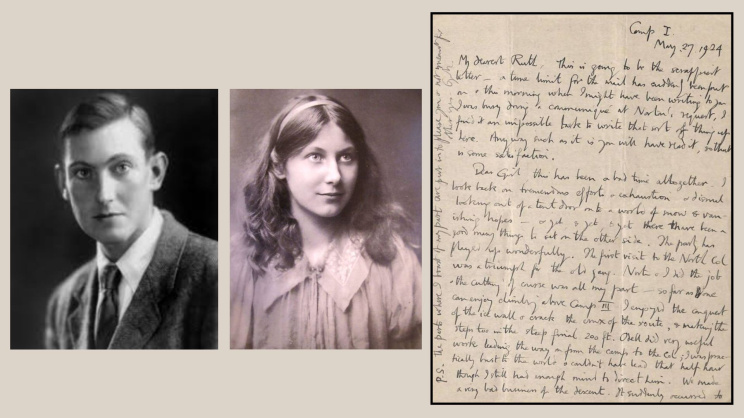 Camp I.
May 27 1924
My dearest Ruth. This is going to be the scrappiest
letter – a time limit for the mail has suddenly been put
on & the morning when I might have been writing to you
I was busy doing a communiqué at Norton's request, I
found it an impossible task to write that sort of thing up
here. Any way such as it is you will have read it, without
is some satisfaction.
Dear Girl this has been a bad time altogether. I
look back on tremendous effort & exhaustion & dismal
looking out of a tent door onto a world of snow & van-
ishing hopes – & yet, & yet, & yet there have been a
good many things to set on the other side. The party has
played up wonderfully. The first visit to the North Col
was a triumph for the old gang. Norton & I did the job
& the cutting of course was all my part – so far as one
can enjoy climbing above Camp III I enjoyed the conquest
of the ice wall & crack the crux of the route, & making the
steps too in the steep final 200 ft. Odell did very useful
work leading the way on from the camp to the Col; I was prac-
tically bust to the world & couldn't have lead that half hour
though I still had enough mind to direct him. We made
a very bad business of the descent. It suddenly occurred to
P.S. The parts where I boast of my part are put in to please you & not meant for
other eyes.